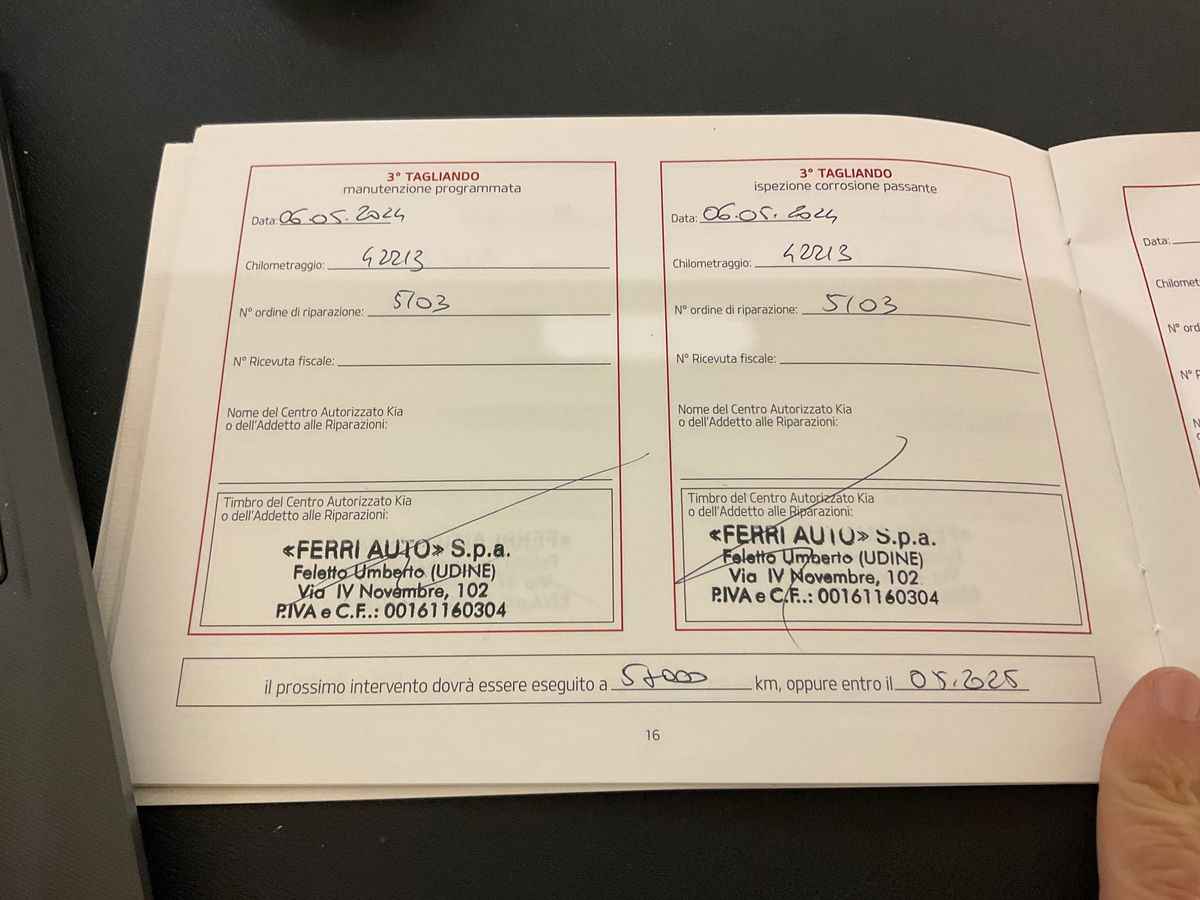 3° TAGLIANDO
manutenzione programmata
Data: 06.05.2024
Chilometraggio: 42213
N° ordine di riparazione: 5103
N° Ricevuta fiscale:
Nome del Centro Autorizzato Kia
o dell'Addetto alle Riparazioni:
Timbro del Centro Autorizzato Kia
o dell'Addetto alle Riparazioni:
«FERRI AUTO» S.p.a.
Feletto Umberto (UDINE)
Via IV Novembre, 102
P.IVA e C.F..: 00161160304
3° TAGLIANDO
ispezione corrosione passante
Data: 06.05.2024
Chilometraggio: 42213
N° ordine di riparazione: 5103
N° Ricevuta fiscale:
Nome del Centro Autorizzato Kia
o dell'Addetto alle Riparazioni:
Timbro del Centro Autorizzato Kia
o dell'Addetto alle Riparazioni:
«FERRI AUTO» S.p.a.
Feletto Umberto (UDINE)
Via IV Novembre, 102
P.IVA e C.F..: 00161160304
il prossimo intervento dovrà essere eseguito a 57000 km, oppure entro il 05.2025
16
Data:
Chilomet
N° ord